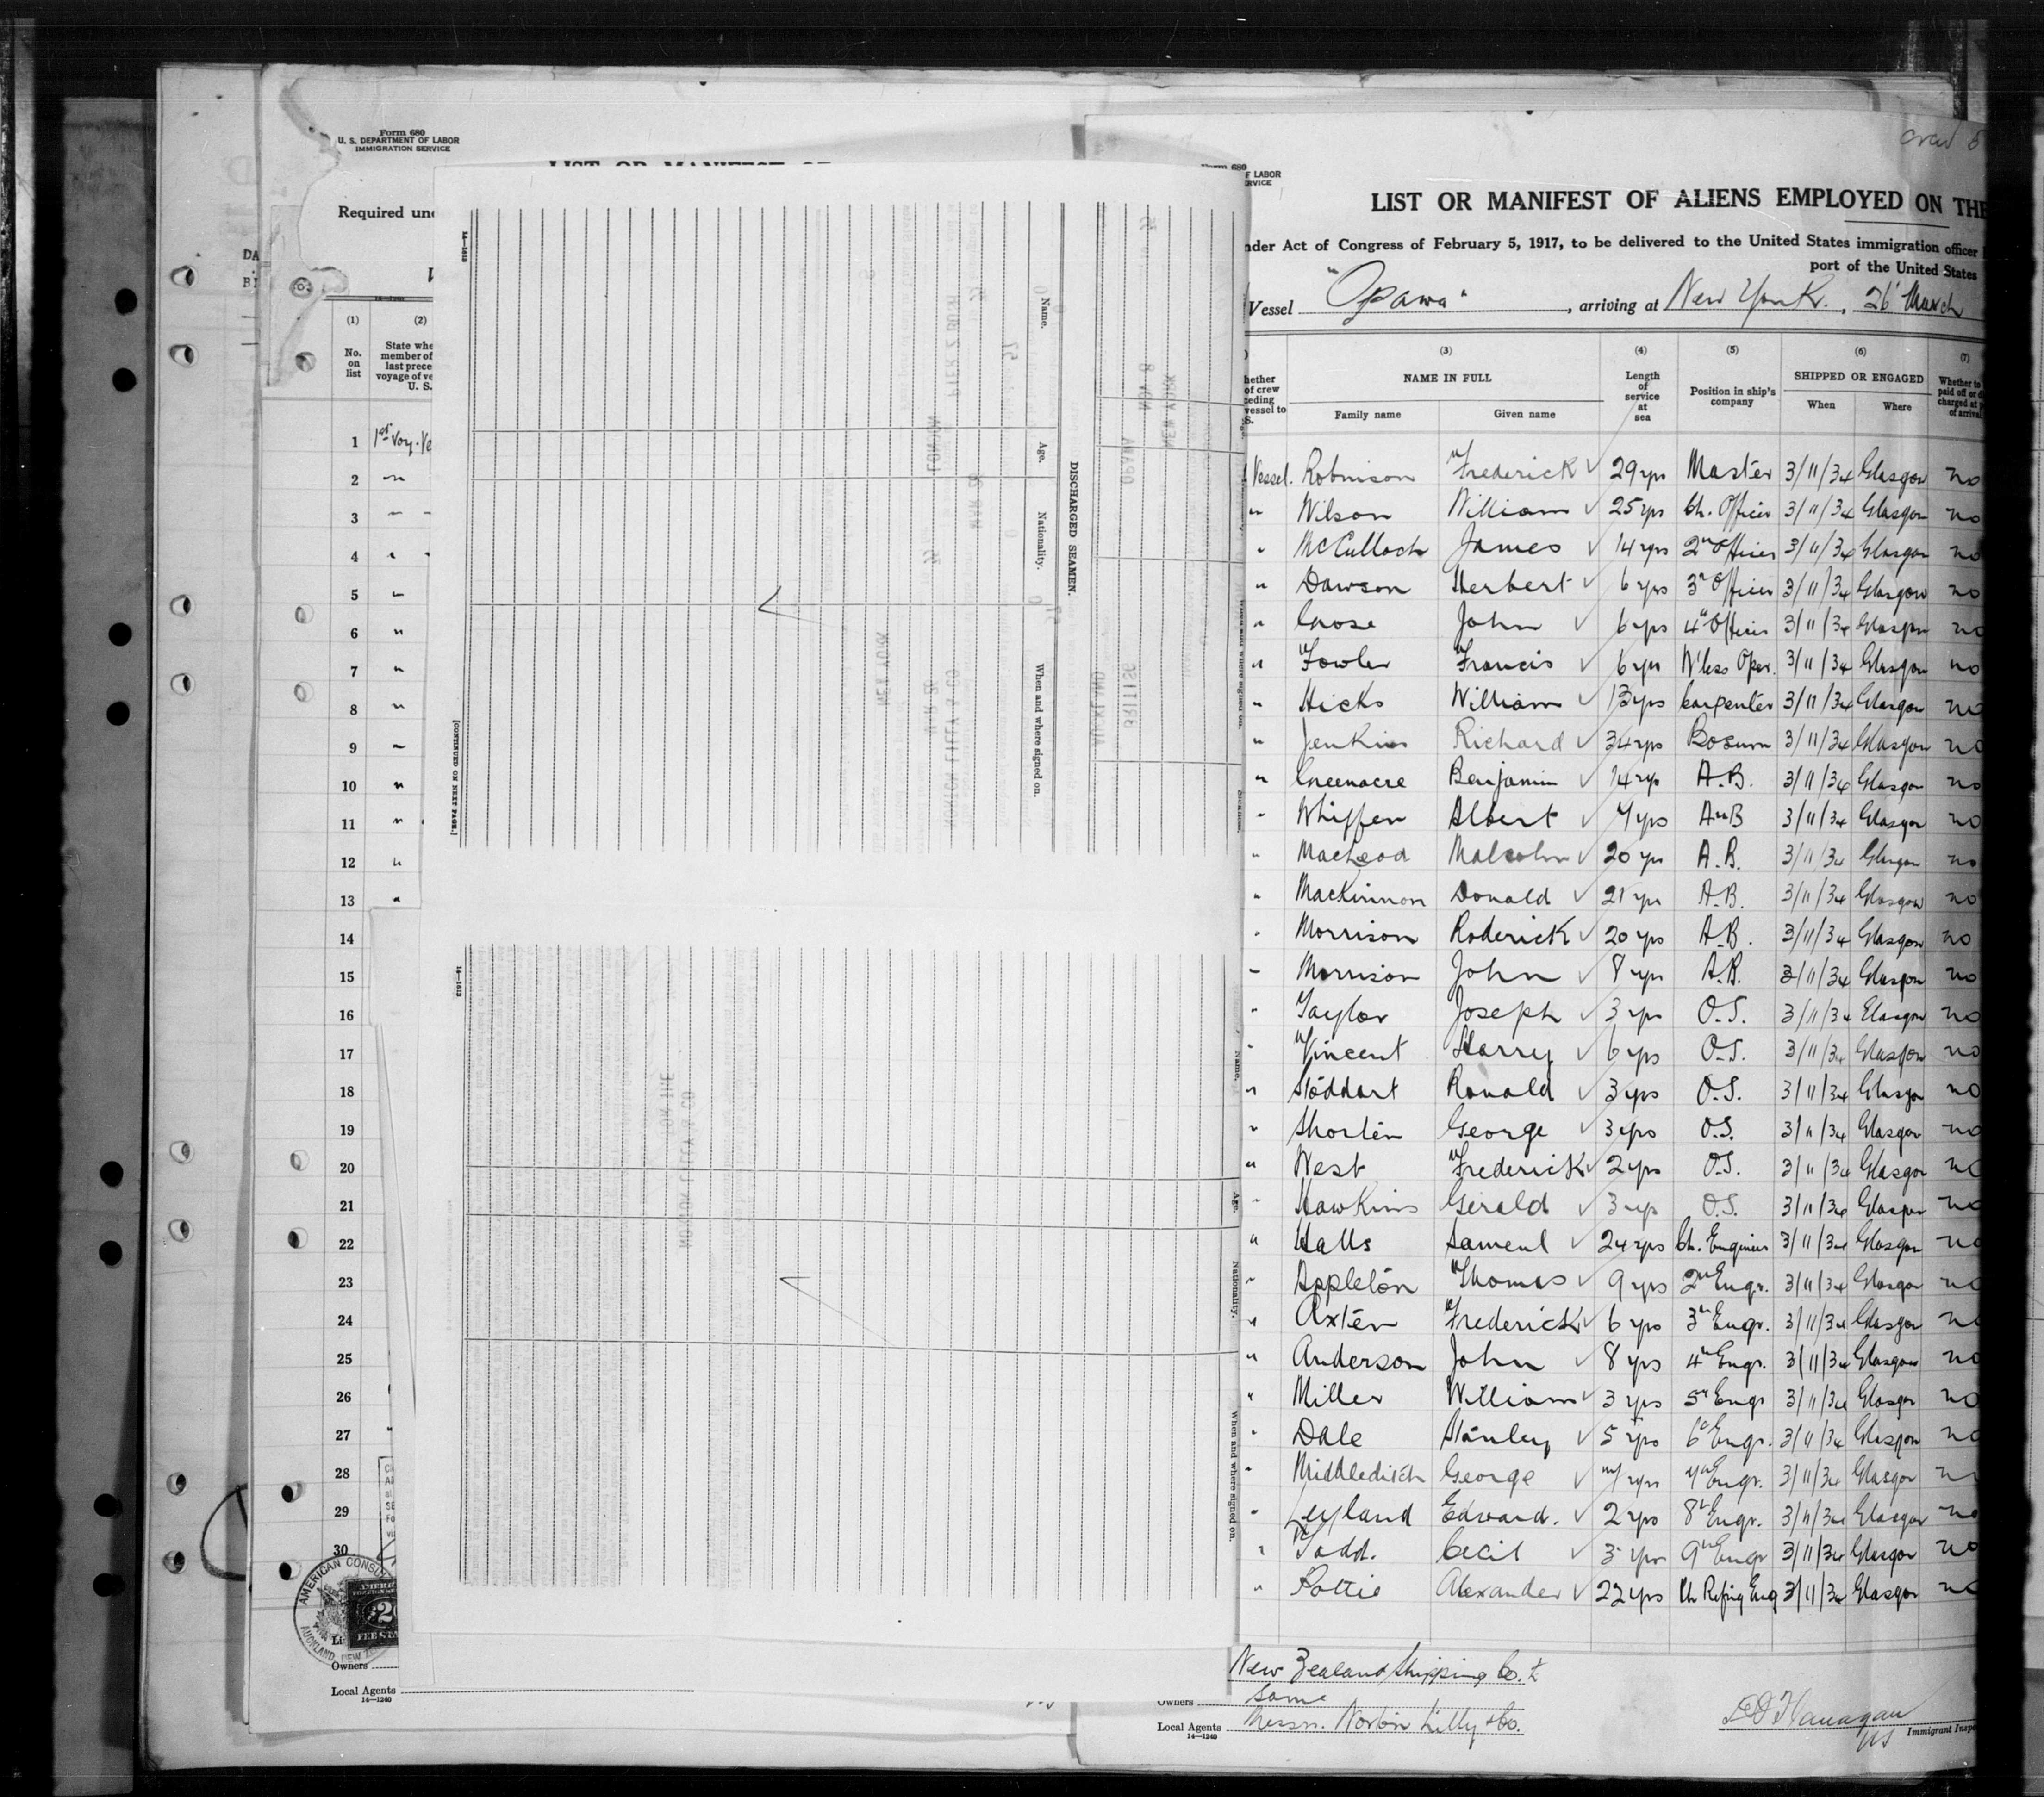 Form 680
U. S. DEPARTMENT OF LABOR
IMMIGRATION SERVICE
Required und
(1) (2)
No. on list
State whe
member of
last prece
voyage of ve
U. S.
1 1st Voy. Ve
2 "
3 "
4 "
5 "
6 "
7 "
8 "
9 "
10 "
11 "
12 "
13 "
14
15
16
17
18
19
20
21
22
23
24
25
26
27 "
28
29
30
AMERICAN CONSUL
AUCKLAND, NEW
Owners
Local Agents
14—1240
14—1613
Name.
Age.
Nationality.
When and where signed on.
DISCHARGED SEAMEN.
[CONTINUED ON NEXT PAGE.]
NEW YORK
NOV 8
OPAWA
BRITISH
AUCKLAND
NEW YORK
NORTON LILLY & CO
LONDON
14—1613
Name.
Age.
Nationality.
When and where signed on.
NORTON LILLY & CO
crew
F LABOR
RVICE
LIST OR MANIFEST OF ALIENS EMPLOYED ON THE
nder Act of Congress of February 5, 1917, to be delivered to the United States immigration officer
port of the United States
Vessel "Opawa", arriving at New York., 26' March
(3) (4) (5) (6) (7)
hether
of crew
eding
vessel to
S.
NAME IN FULL
Family name Given name
Length of service at sea
Position in ship's company
SHIPPED OR ENGAGED
When Where
Whether to
paid off or d
charged at p
of arrival
Vessel. Robinson Frederick √ 29 yrs Master 3/11/34 Glasgow no
" Wilson William √ 25 yrs Ch. Officer 3/11/34 Glasgow no
" McCulloch James √ 14 yrs 2nd Officer 3/11/34 Glasgow no
" Dawson Herbert √ 6 yrs 3r Officer 3/11/34 Glasgow no
" John √ 6 yrs 4th Officer 3/11/34 Glasgow no
" Fowler Francis √ 6 yrs W'less Oper. 3/11/34 Glasgow no
" Hicks William √ 13 yrs Carpenter 3/11/34 Glasgow no
" Jenkins Richard √ 34 yrs Bosun 3/11/34 Glasgow no
" Greenacre Benjamin √ 14 yrs A.B. 3/11/34 Glasgow no
" Whiffen Albert √ 7 yrs A.B 3/11/34 Glasgow no
" MacLeod Malcolm √ 20 yrs A.B. 3/11/34 Glasgow no
" MacKinnon Donald √ 21 yrs A.B. 3/11/34 Glasgow no
" Morrison Roderick √ 20 yrs A.B. 3/11/34 Glasgow no
" Morrison John √ 8 yrs A.B. 3/11/34 Glasgow no
" Taylor Joseph √ 3 yrs O.S. 3/11/34 Glasgow no
" Vincent Harry √ 6 yrs O.S. 3/11/34 Glasgow no
" Stoddart Ronald √ 3 yrs O.S. 3/11/34 Glasgow no
" Shorten George √ 3 yrs O.S. 3/11/34 Glasgow no
" West Frederick √ 2 yrs O.S. 3/11/34 Glasgow no
" Hawkins Gerald √ 3 yrs O.S. 3/11/34 Glasgow no
" Halls Samuel √ 24 yrs Ch. Engineer 3/11/34 Glasgow no
" Appleton Thomas √ 9 yrs 2nd Engr. 3/11/34 Glasgow no
" Axten Frederick √ 6 yrs 3rd Engr. 3/11/34 Glasgow no
" Anderson John √ 8 yrs 4th Engr. 3/11/34 Glasgow no
" Miller William √ 3 yrs 5th Engr 3/11/34 Glasgow no
" Dale Stanley √ 5 yrs 6th Engr. 3/11/34 Glasgow no
" Middleditch George √ yrs 7th Engr. 3/11/34 Glasgow no
" Leyland Edward. √ 2 yrs 8th Engr. 3/11/34 Glasgow no
" Todd. Cecil √ 3 yrs 9th Engr 3/11/34 Glasgow no
" Pottie Alexander √ 22 yrs Ch Refrig Eng 3/11/34 Glasgow no
New Zealand Shipping Co. L
Owners Same
Local Agents Messrs. Norton Lilly & Co.
14—1240
Flanagan
Immigrant Inspe